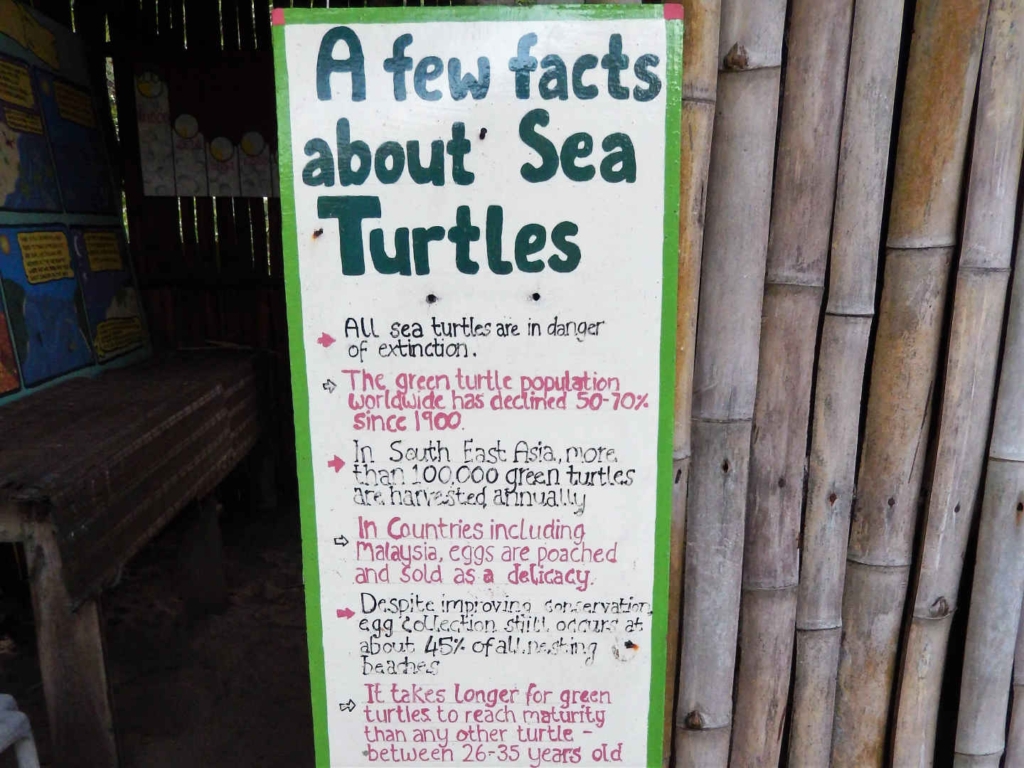 A few facts
about Sea
Turtles
All sea turtles are in danger
of extinction.
The green turtle population
worldwide has declined 50-70%
since 1900.
In South East Asia, more
than 100,000 green turtles
are harvested annually
In Countries including
Malaysia, eggs are poached
and sold as a delicacy.
Despite improving conservation,
egg collection still occurs at
about 45% of all nesting
beaches
It takes longer for green
turtles to reach maturity
than any other turtle -
between 26-35 years old